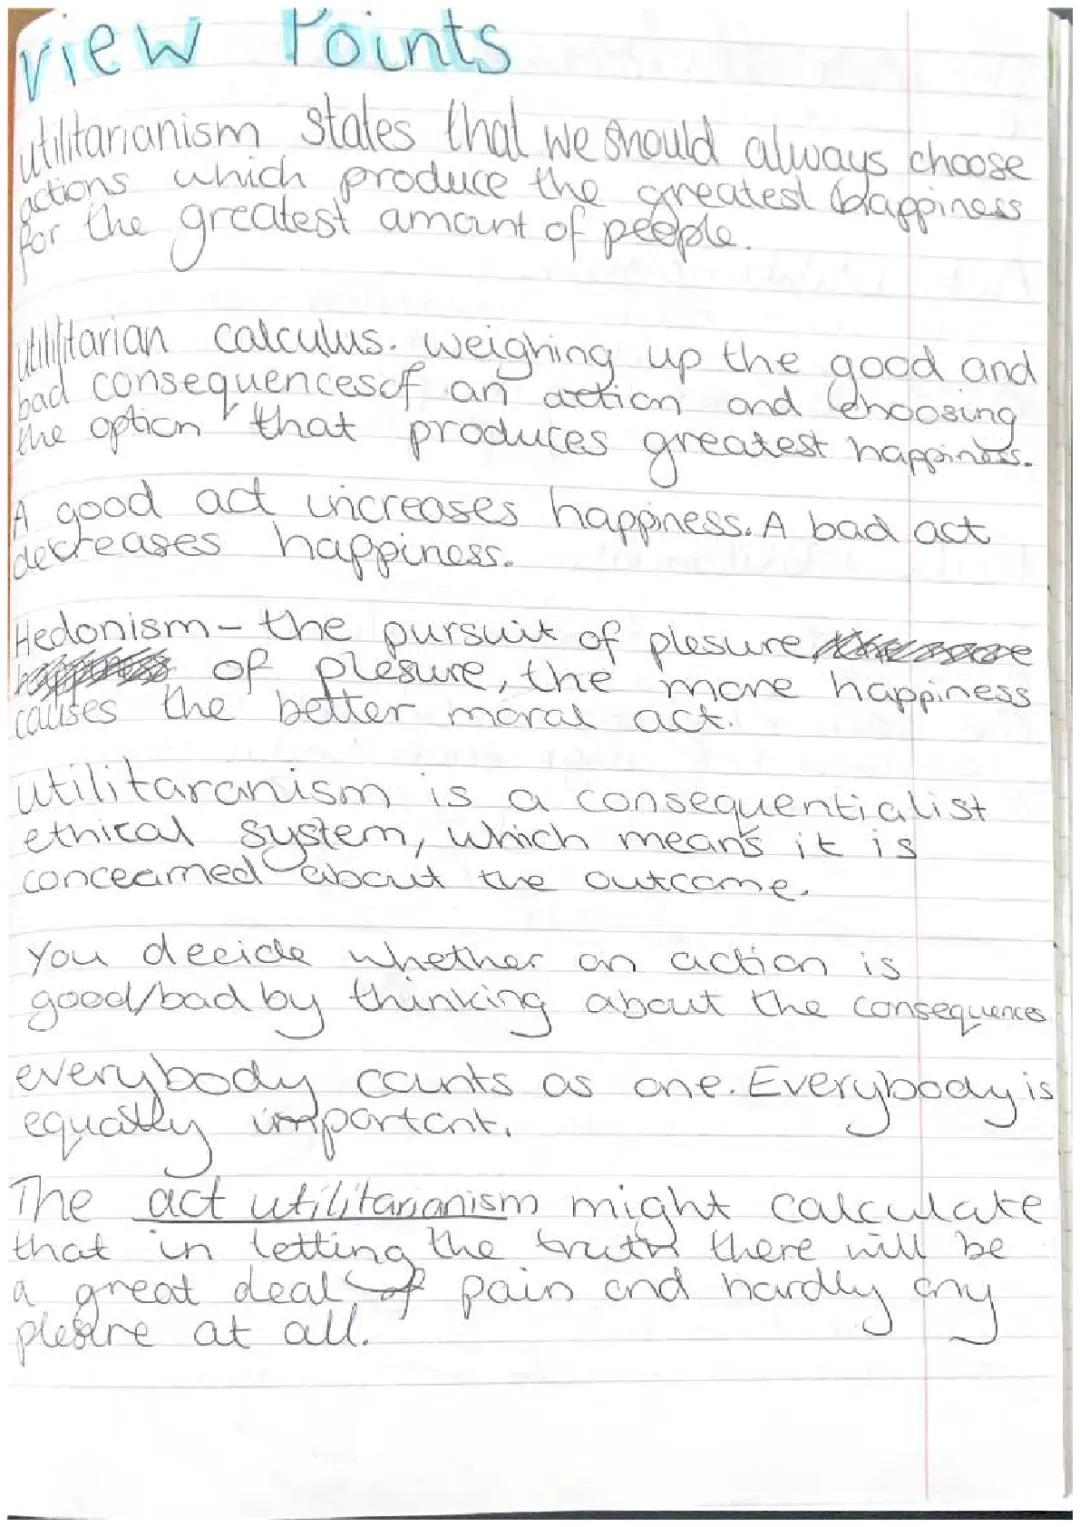 view Points
utilitarianism states that we should always choose
actions which produce the greatest happiness
for the greatest amount of people.
utillitarian calculus. weighing up the good and
bad consequences of an action and choosing
the option that produces greatest happiness.
A good act increases happiness. A bad act
decreases happiness.
Hedonism - the pursuit of plesure,
of plesure, the more happiness
causes the better moral act.
utilitaranism is a consequentialist
ethical system, which means it is
concearned about the outcome.
You decide whether an action is
good/bad by thinking about the consequences
everybody counts as one. Everybody is
equally important.
The act utilitarianism might calculate
that in letting the truth there will be
a great deal of pain and hardly any
plesure at all.